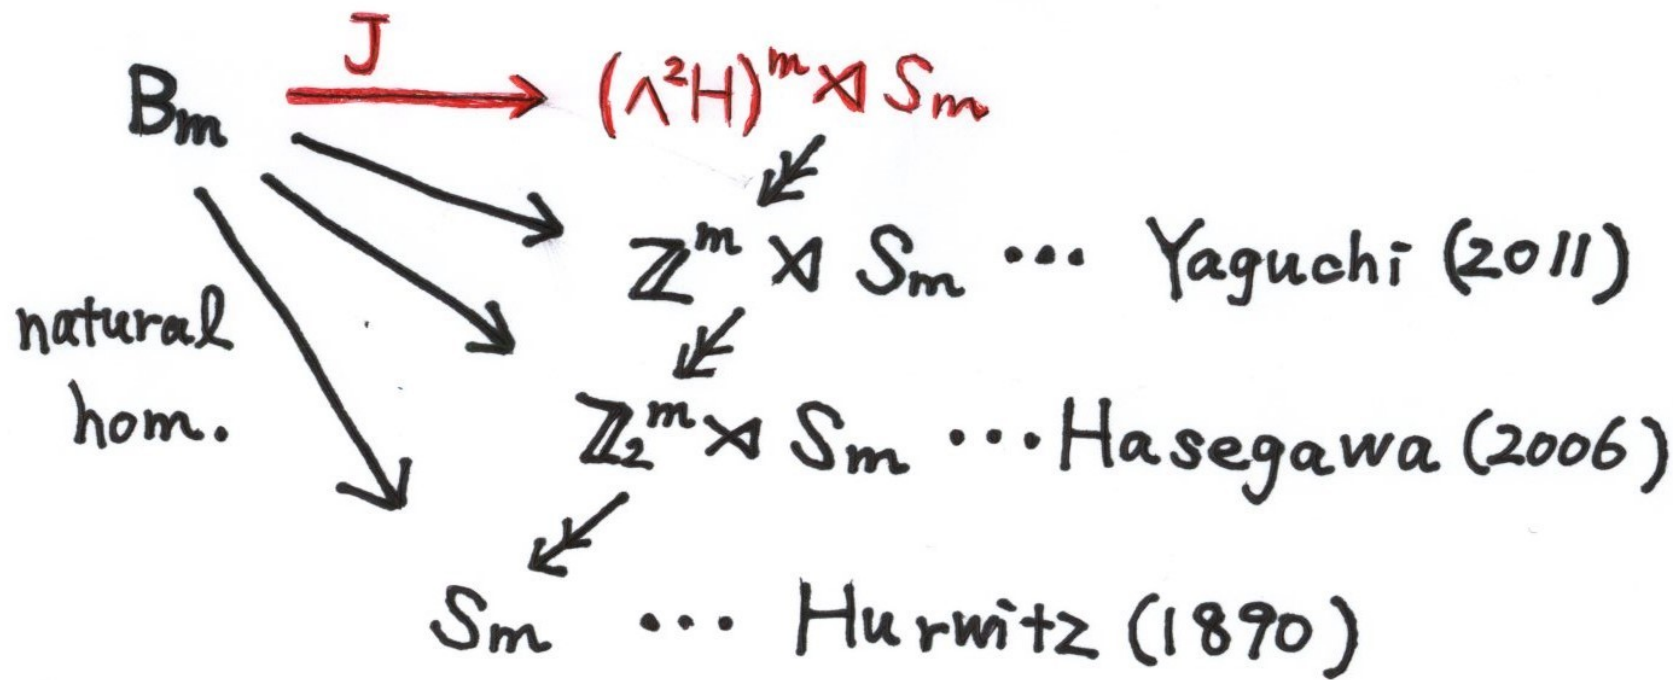 J
Bm (∧²H)ᵐ ⋊ Sm
ℤᵐ ⋊ Sm ··· Yaguchi (2011)
natural
hom.
ℤ₂ᵐ ⋊ Sm ··· Hasegawa (2006)
Sm ··· Hurwitz (1890)